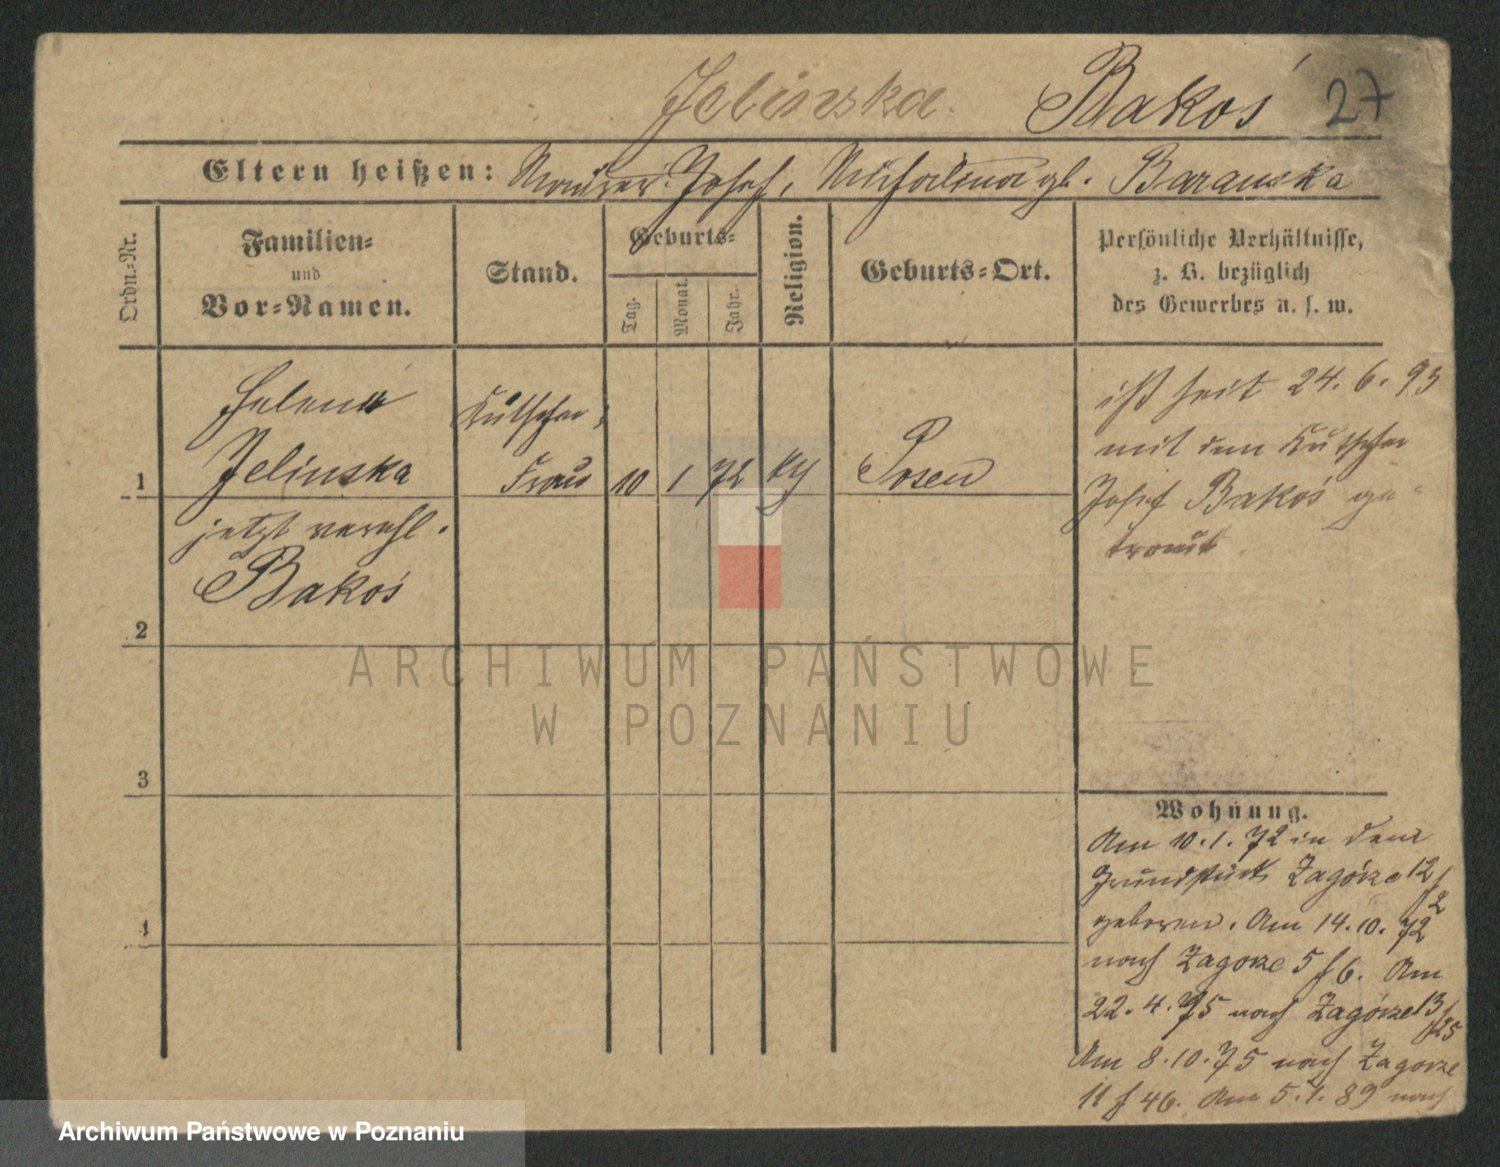 Jelinska. Bakoś 27
Eltern heißen: Maurer Josef, Michalina gb. Baranska
Ordn.-Nr.
Familien-
und
Vor-Namen.
Stand.
Geburts-
Tag.
Monat.
Jahr.
Religion.
Geburts-Ort.
Persönliche Verhältnisse,
z. B. bezüglich
des Gewerbes u. s. w.
1
Helena
Jelinska
jetzt verehl.
Bakoś
Kutscher
Frau
10 1 72 kth Posen
ist seit 24. 6. 93
mit dem Kutscher
Josef Bakoś ge-
traut
2
3
4
Wohnung.
Am 10. 1. 72 in dem
Grundstück Zagórze 12/2
geboren. Am 14. 10. 72
nach Zagorze 5/6. Am
22. 4. 75 nach Zagórze 13/25
Am 8. 10. 75 nach Zagorze
11/46. Am 5. 1. 89 nach
ARCHIWUM PAŃSTWOWE
W POZNANIU
Archiwum Państwowe w Poznaniu